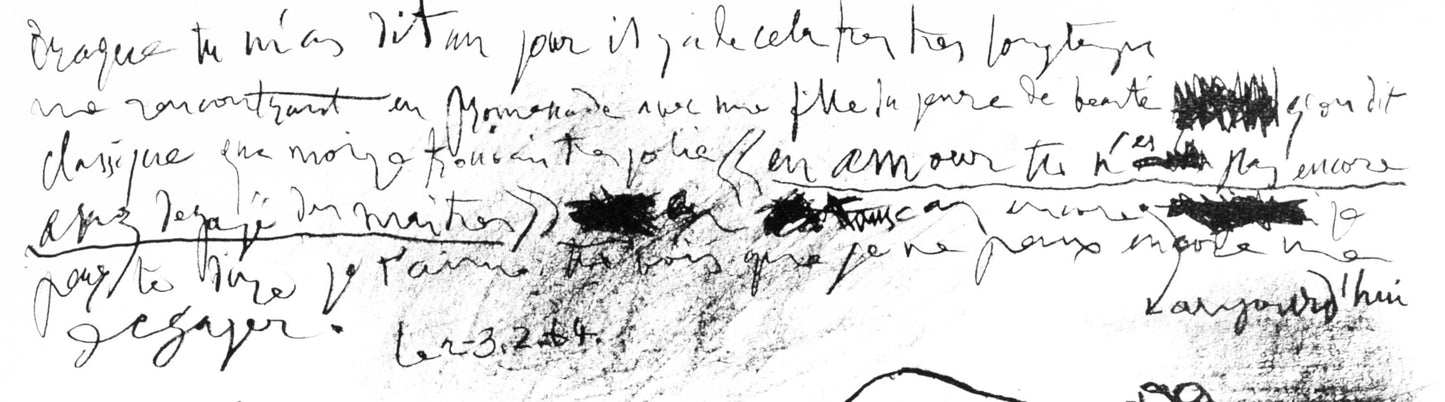 Braque tu m'as dit un jour il y a de cela tres tres longtemps
me rencontrant en promenade avec une fille du genre de beauté qu'on dit
classique que moi je trouvais tres jolie « en amour tu n'es pas encore
assez degagé des maitres » en tous cas encore je
peux te dire je t'aime tu vois que je ne peux encore me
aujourd'hui
degager. 3.2.64.